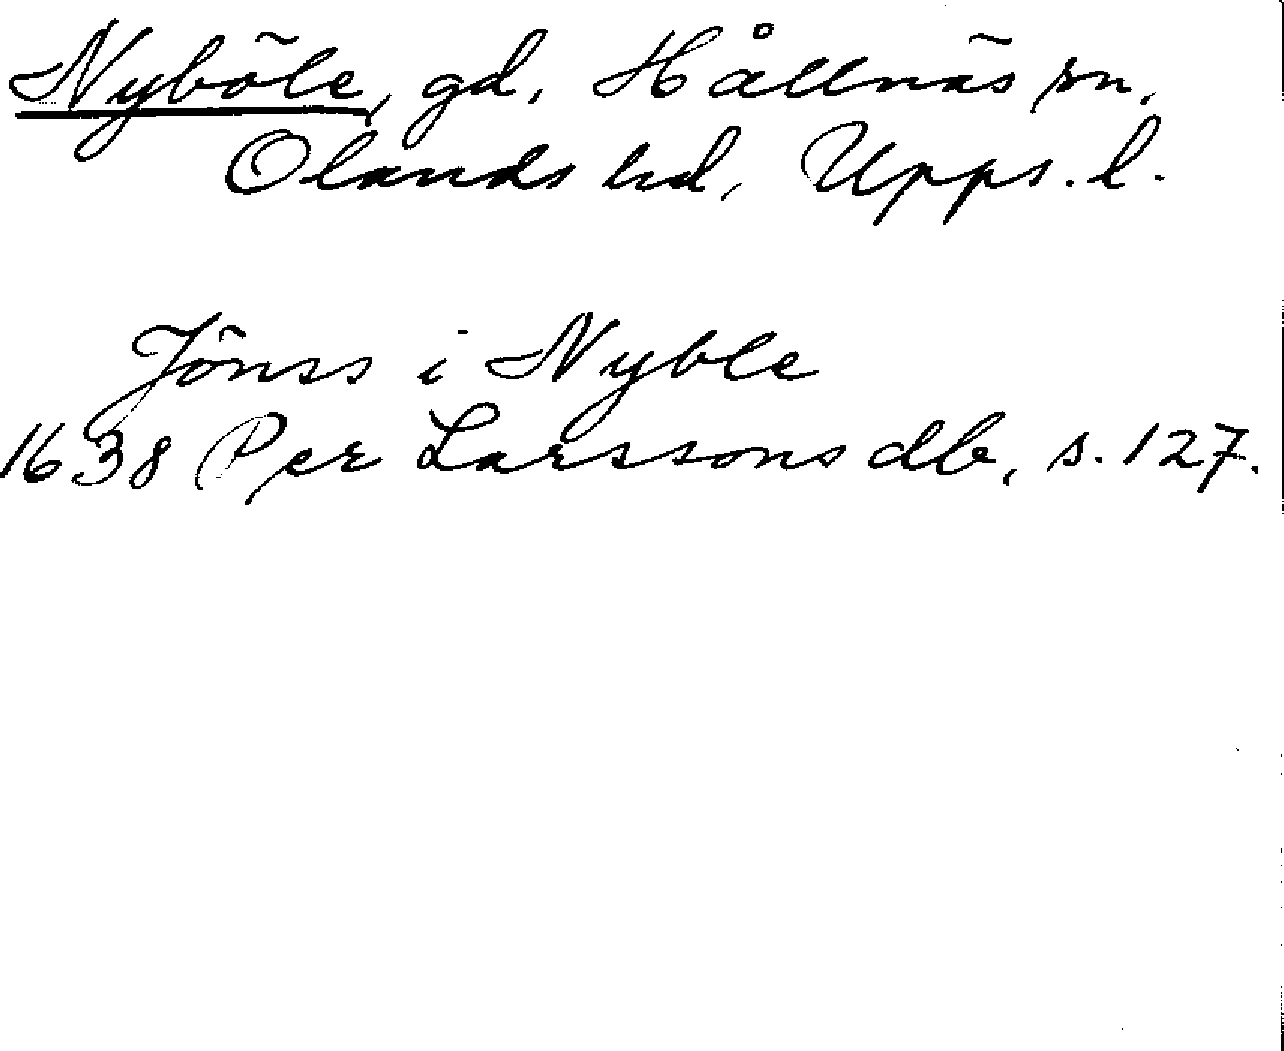 Nyböle, gd, Hållnäs sn,
Olands hd, Upps. l.
Jönss i Nyble
1638 Per Larssons db, s. 127.